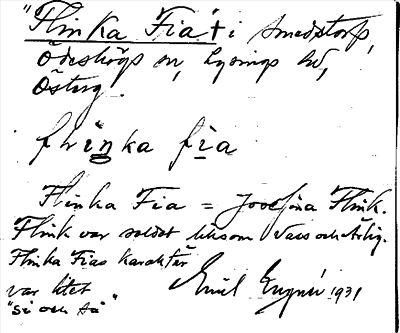 "Flinka Fia" i Smedstorp,
Ödeshögs sn, Lysings hd,
Österg.
flin̲ka fi̲a
Flinka Fia = Josefina Flink.
Flink var soldat liksom Vass och Ärlig.
Flinka Fias karaktär
var litet
"si och så"
Emil Engnér 1931